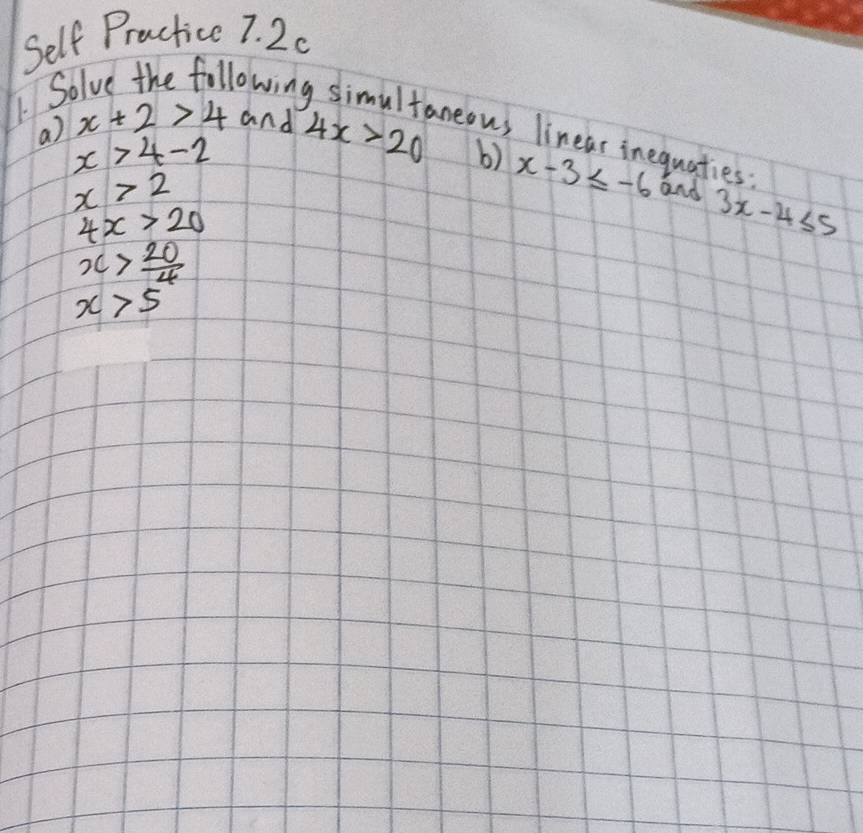 Self Practice 7.2c
1. Solve the following simultaneous linear inequaties:
a) x + 2 > 4 and 4x > 20 b) x - 3 ≤ -6 and 3x - 4 ≤ 5
x > 4 - 2
x > 2
4x > 20
x > 20/4
x > 5